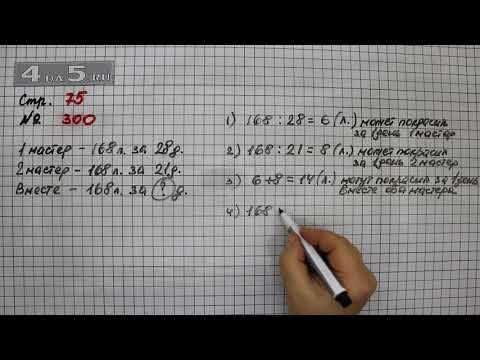 4 на 5.RU
Стр. 75
№ 300
1 мастер - 168 л. за 28 д.
2 мастер - 168 л. за 21 д.
Вместе - 168 л. за ? д.
1) 168 : 28 = 6 (л.) может покрасить
за 1 день 1 мастер
2) 168 : 21 = 8 (л.) может покрасить
за 1 день 2 мастер
3) 6 + 8 = 14 (л.) могут покрасить за 1 день
вместе оба мастера
4) 168